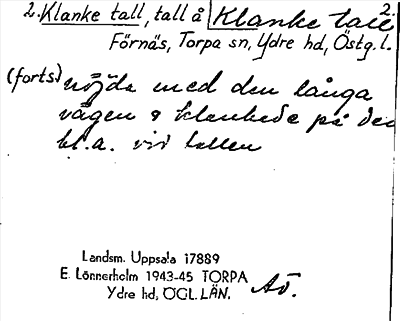 2. Klanke tall, tall å Klanke tall 2.
Förnäs, Torpa sn, Ydre hd, Östg. l.
(forts) nöjda med den långa
vägen & klankade på den
bl.a. vid tallen
Landsm. Uppsala 17889
E. Lönnerholm 1943-45 TORPA
Ydre hd, ÖGL. LÄN.